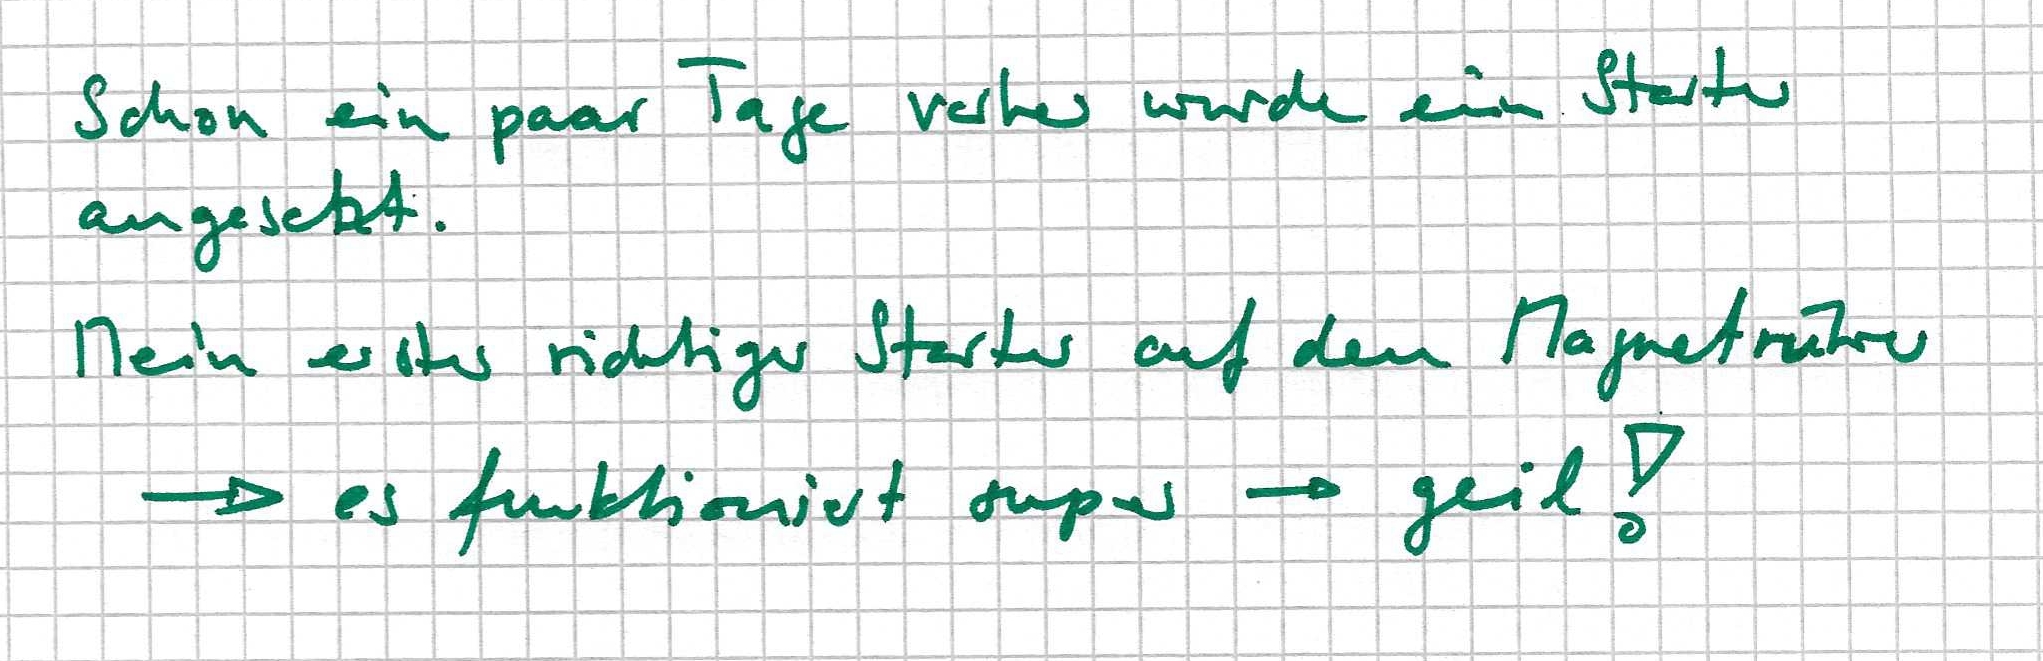 Schon ein paar Tage vorher wurde ein Starter
angesetzt.
Mein erster richtiger Starter auf dem Magnetrührer
→ es funktioniert super → geil!